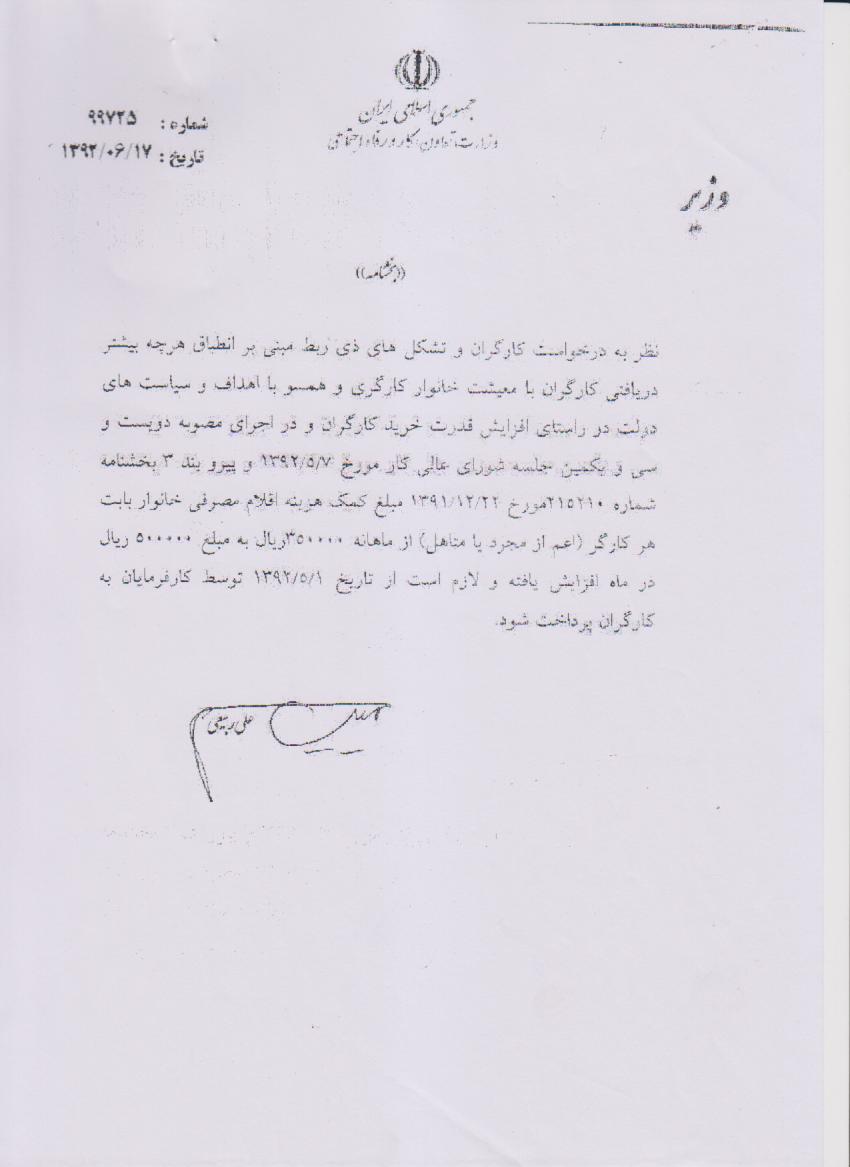 جمهوری اسلامی ایران
وزارت تعاون، کار و رفاه اجتماعی
شماره : ۹۹۷۲۵
تاریخ : ۱۳۹۲/۰۶/۱۷
وزیر
((بخشنامه))
نظر به درخواست کارگران و تشکل های ذی ربط مبنی بر انطباق هرچه بیشتر
دریافتی کارگران با معیشت خانوار کارگری و همسو با اهداف و سیاست های
دولت در راستای افزایش قدرت خرید کارگران و در اجرای مصوبه دویست و
سی و یکمین جلسه شورای عالی کار مورخ ۱۳۹۲/۵/۷ و پیرو بند ۳ بخشنامه
شماره ۲۱۵۲۱۰مورخ ۱۳۹۱/۱۲/۲۲ مبلغ کمک هزینه اقلام مصرفی خانوار بابت
هر کارگر (اعم از مجرد یا متاهل) از ماهانه ۳۵۰۰۰۰ریال به مبلغ ۵۰۰۰۰۰ ریال
در ماه افزایش یافته و لازم است از تاریخ ۱۳۹۲/۵/۱ توسط کارفرمایان به
کارگران پرداخت شود.
علی ربیعی